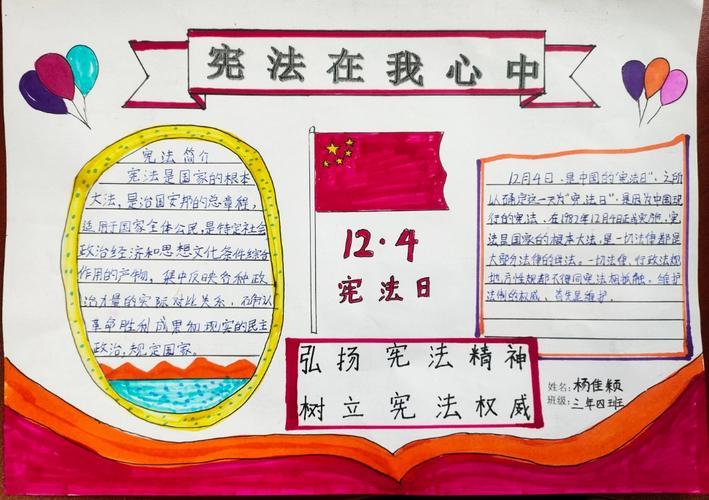 宪法在我心中
宪法简介
宪法是国家的根本
大法,是治国安邦的总章程,
适用于国家全体公民,是特定社会
政治经济和思想文化条件综合
作用的产物,集中反映各种政
治力量的实际对比关系,
革命胜利成果和现实的民主
政治,规定国家.
12·4
宪法日
12月4日,是中国的"宪法日",之所
以确定这一天为"宪法日",是因为中国现
行的宪法、在1982年12月4日正式实施,宪
法是国家的根本大法,是一切法律都是
大部分法律的母法。一切法律,行政法规
地方性规都不得同宪法相抵触。维护
法律的权威、首先是维护.
弘扬宪法精神
树立宪法权威
姓名:杨佳颖
班级:三年四班